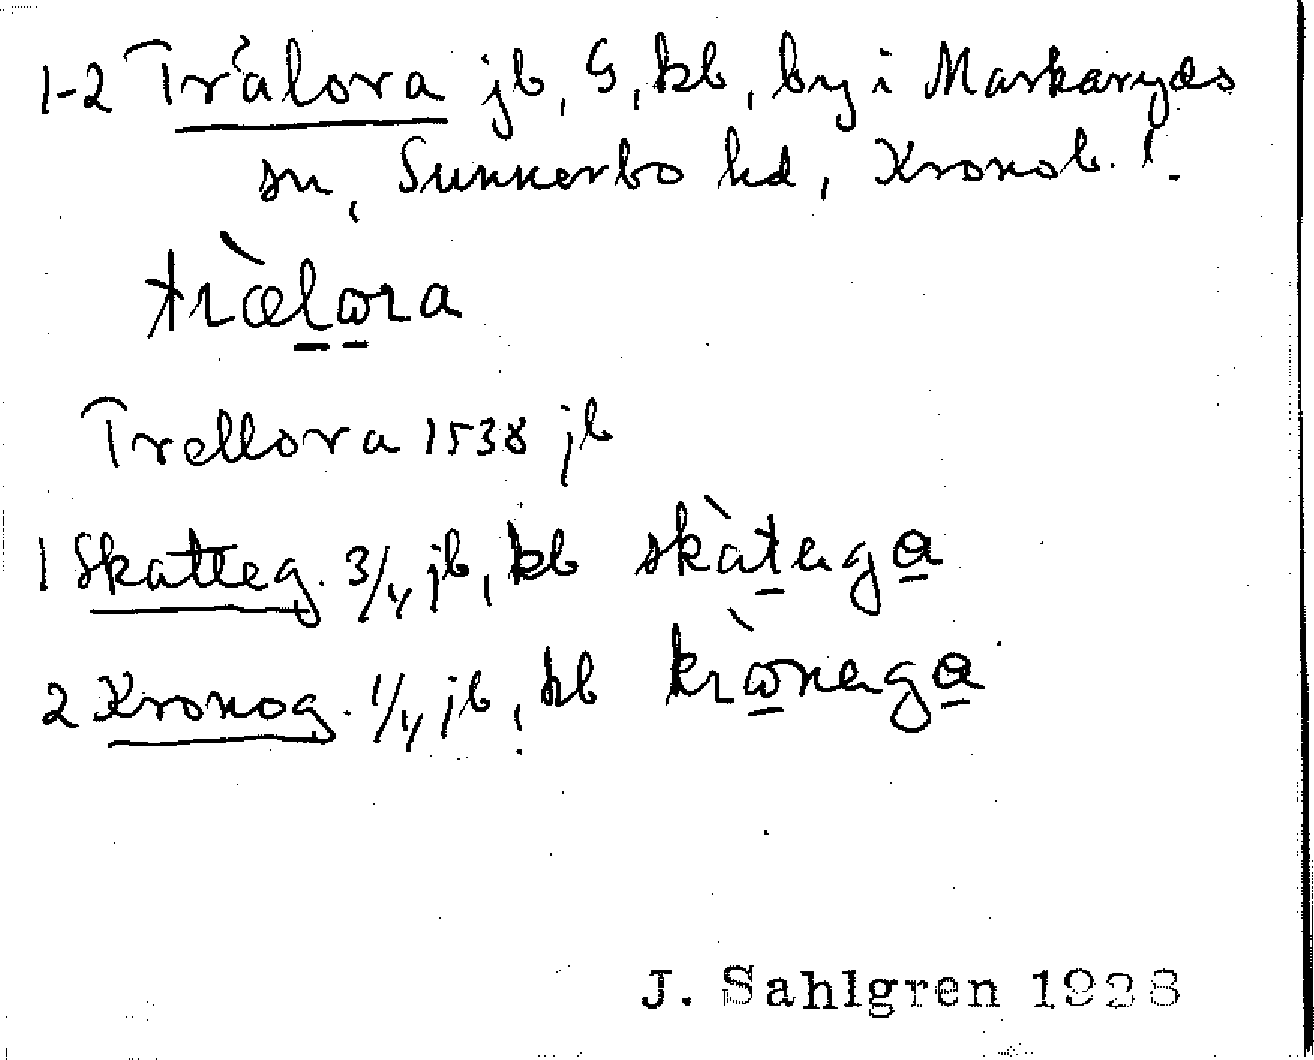 1-2 Trälora jb, G, kb, by i Markaryds
sn, Sunnerbo hd, Kronob. l.
trælωra
Trellora 1538 jb
1 Skatteg. 3/4 jb, kb skàtega
2 Kronog. 1/4 jb, kb krωnega
J. Sahlgren 1928